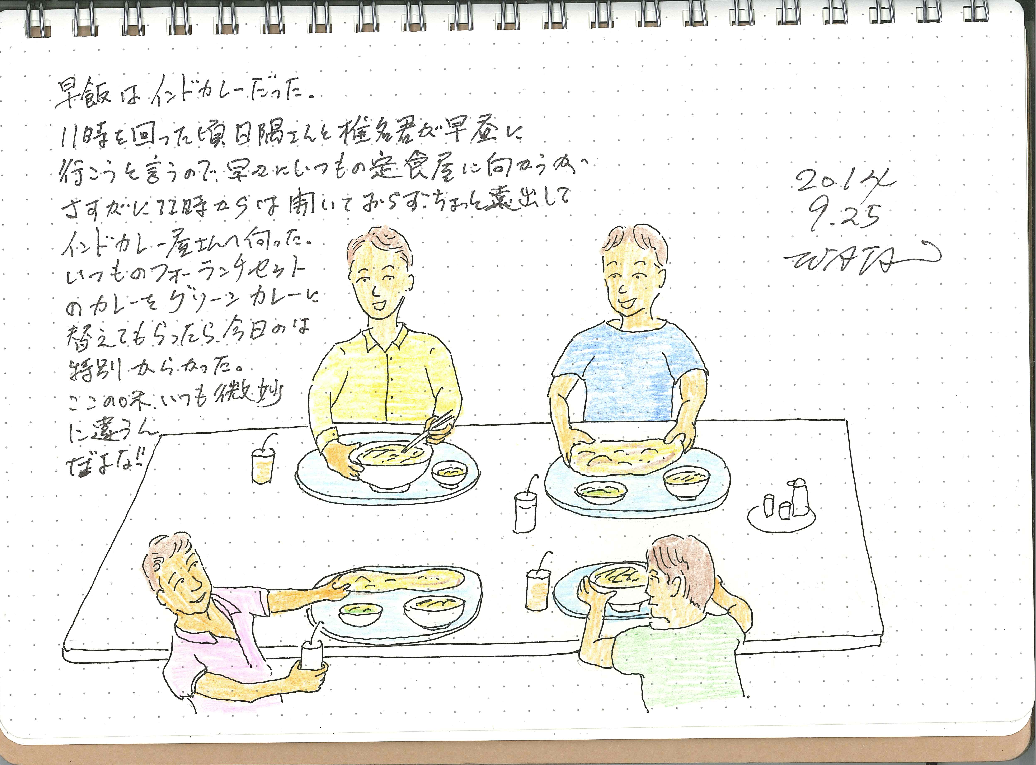 早飯はインドカレーだった。
11時を回った頃日隅さんと椎名君が早昼に
行こうと言うので、早々にいつもの定食屋に向かうが
さすがに11時からは開いておらず、ちょっと遠出して
インドカレー屋さんへ向った。
いつものフォーランチセット
のカレーをグリーンカレーに
替えてもらったら、今日のは
特別からかった。
ここの味、いつも微妙
に違うん
だよな!!
2014
9.25
WATA